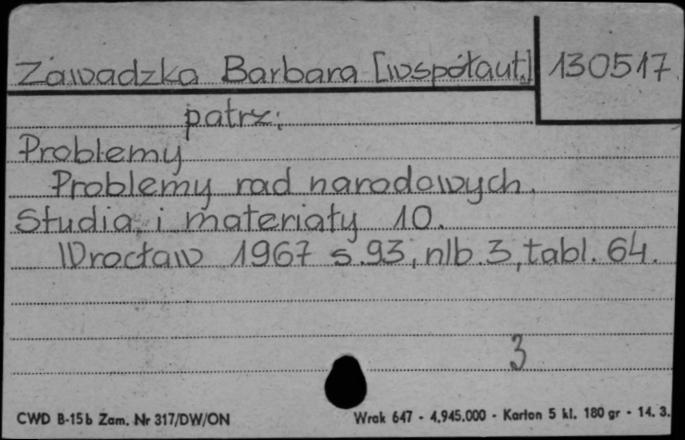 Zawadzka Barbara [współaut.] 130517
patrz:
Problemy
Problemy rad narodowych.
Studia i materiały 10.
Wrocław 1967 s. 93, nlb. 3, tabl. 64.
3
CWD B-15b Zam. Nr 317/DW/ON Wrak 647 - 4.945.000 - Karton 5 kl. 180 gr - 14. 3.